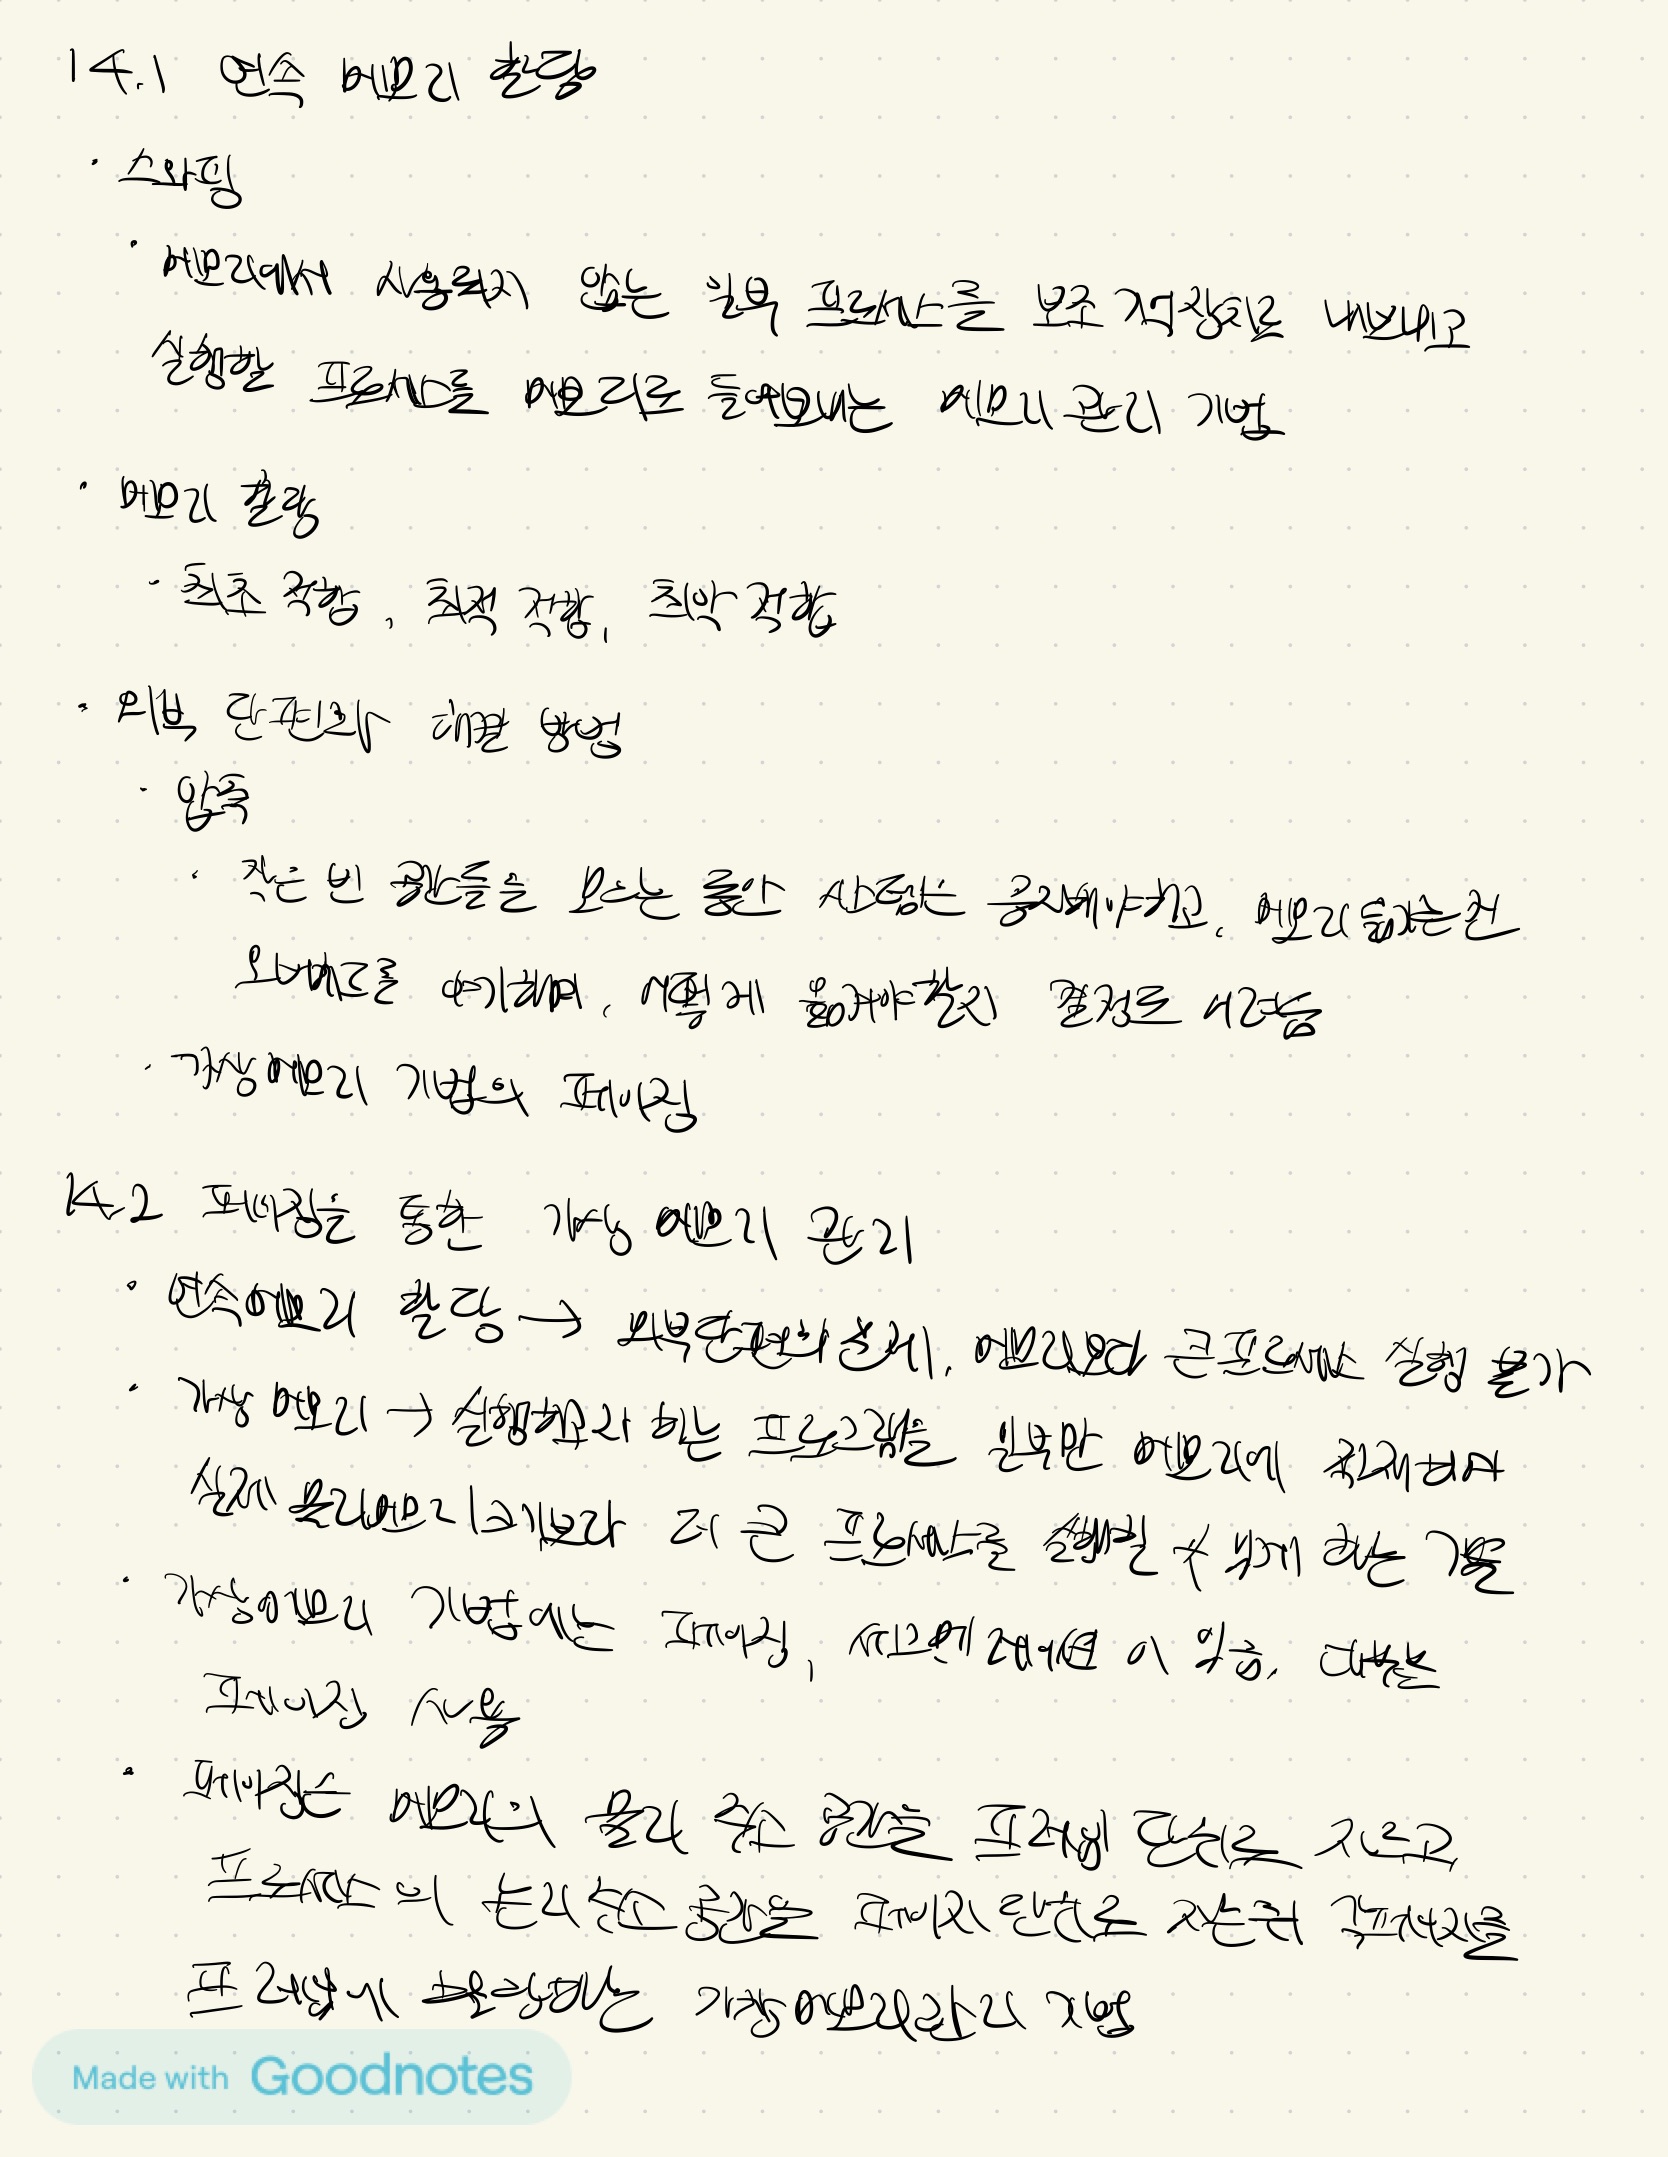 14.1 연속 메모리 할당
· 스와핑
· 메모리에서 사용되지 않는 일부 프로세스를 보조 기억장치로 내보내고
실행할 프로세스를 메모리로 들여보내는 메모리 관리 기법
· 메모리 할당
· 최초 적합, 최적 적합, 최악 적합
· 외부 단편화 해결 방법
· 압축
· 작은 빈 공간들을 모으는 동안 시스템은 중지해야하고, 메모리 옮기는건
오버헤드를 야기하며, 어떻게 옮겨야할지 결정도 어려움
· 가상메모리 기법의 페이징
14.2 페이징을 통한 가상 메모리 관리
· 연속메모리 할당 → 외부단편화 문제, 메모리보다 큰 프로세스 실행 불가
· 가상 메모리 → 실행하고자 하는 프로그램을 일부만 메모리에 적재하여
실제 물리메모리 크기보다 더 큰 프로세스를 실행할 수 있게 하는 기술
· 가상메모리 기법에는 페이징, 세그멘테이션이 있음. 대부분
페이징 사용
· 페이징은 메모리의 물리 주소 공간을 프레임 단위로 자르고,
프로세스의 논리 주소 공간을 페이지 단위로 자른뒤 각 페이지를
프레임에 할당하는 가상메모리관리 기법
Made with Goodnotes